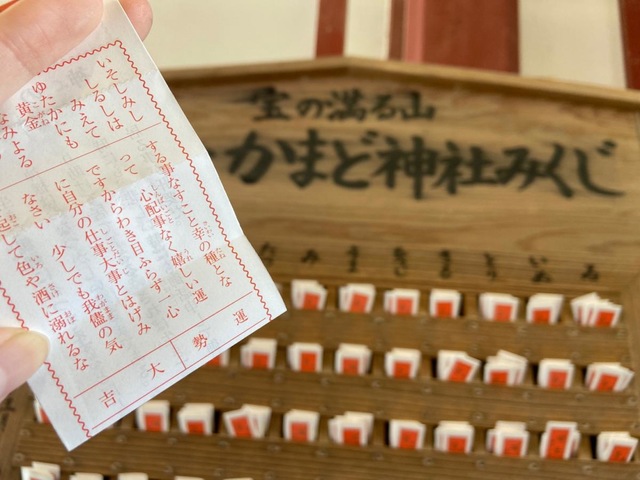 宝の満る山
かまど神社みくじ
み
うま
とり
いぬ
運勢
大吉
いそしみし
しるしは
みえて
ゆたかにも
黄金
なみよる
する事なすこと幸の種とな
って 心配事なく嬉しい運
ですからわき目ふらず一心
に自分の仕事大事とはげみ
なさい 少しでも我儘の気
起して色や酒に溺れるな